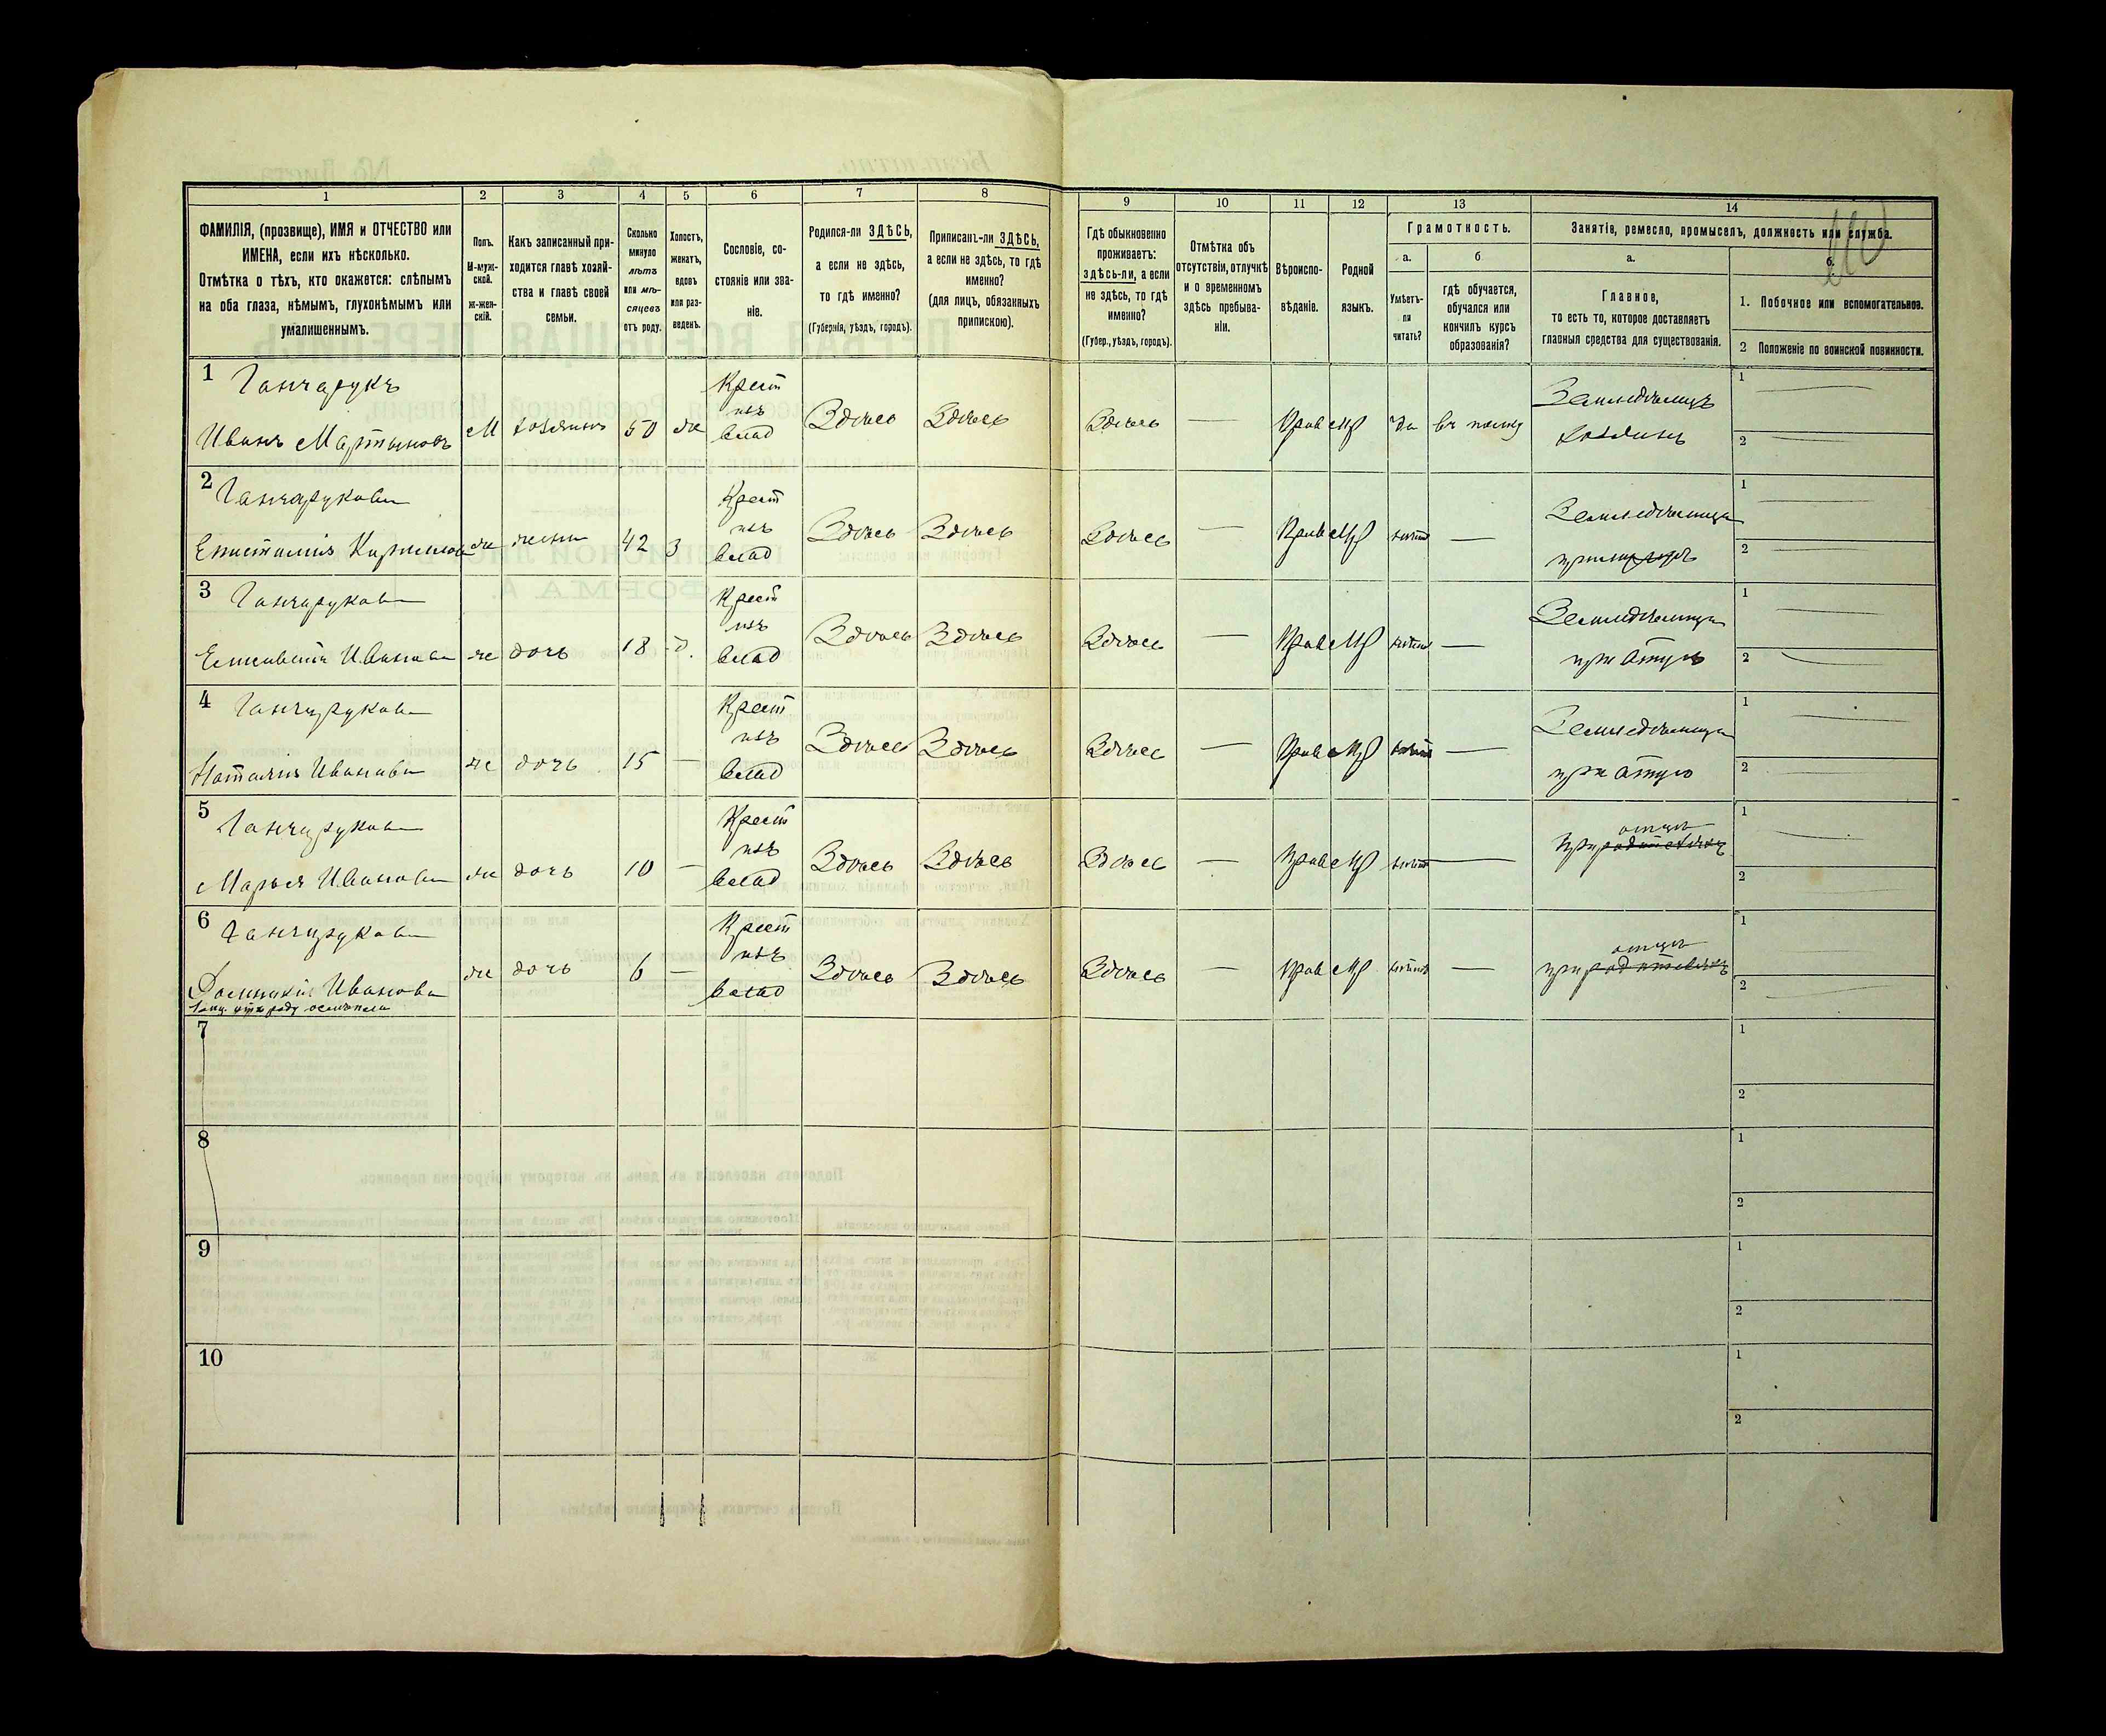 1 2 3 4 5 6 7 8 9 10 11 12 13 14
ФАМИЛІЯ, (прозвище), ИМЯ и ОТЧЕСТВО или
ИМЕНА, если ихъ нѣсколько.
Отмѣтка о тѣхъ, кто окажется: слѣпымъ
на оба глаза, нѣмымъ, глухонѣмымъ или
умалишеннымъ.
Полъ.
М-муж-
ской.
ж-жен-
скій.
Какъ записанный при-
ходится главѣ хозяй-
ства и главѣ своей
семьи.
Сколько
минуло
лѣтъ
или мѣ-
сяцевъ
отъ роду.
Холостъ,
женатъ,
вдовъ
или раз-
веденъ.
Сословіе, со-
стояніе или зва-
ніе.
Родился-ли ЗДѢСЬ,
а если не здѣсь,
то гдѣ именно?
(Губернія, уѣздъ, городъ).
Приписанъ-ли ЗДѢСЬ,
а если не здѣсь, то гдѣ
именно?
(для лицъ, обязанныхъ
припискою).
Гдѣ обыкновенно
проживаетъ:
здѣсь-ли, а если
не здѣсь, то гдѣ
именно?
(Губер., уѣздъ, городъ).
Отмѣтка объ
отсутствіи, отлучкѣ
и о временномъ
здѣсь пребыва-
ніи.
Вѣроиспо-
вѣданіе.
Родной
языкъ.
Грамотность.
а.
Умѣетъ-
ли
читать?
б
гдѣ обучается,
обучался или
кончилъ курсъ
образованія?
Занятіе, ремесло, промыселъ, должность или служба.
а.
Главное,
то есть то, которое доставляетъ
главныя средства для существованія.
б.
1. Побочное или вспомогательное.
2 Положеніе по воинской повинности.
1 Ганчарукъ
Иванъ Мартыновъ М хозяинъ 50 ж Крест
изъ
влад Здѣсь Здѣсь Здѣсь — Прав МР да
Земледѣлецъ
хозяинъ
1 —
2 —
2 Ганчарукова
жена 42 З Крест
изъ
влад Здѣсь Здѣсь Здѣсь — Прав МР —
Земледѣлица
1 —
2 —
3 Ганчарукова
Иванова ж дочь 18 д. Крест
изъ
влад Здѣсь Здѣсь Здѣсь — Прав МР —
Земледѣлица
при отцѣ
1 —
2 —
4 Ганчарукова
Наталія Иванова ж дочь 15 — Крест
изъ
влад Здѣсь Здѣсь Здѣсь — Прав МР —
Земледѣлица
при
1 —
2 —
5 Ганчарукова
Марья Иванова ж дочь 10 — Крест
изъ
влад Здѣсь Здѣсь Здѣсь — Прав МР —
отцѣ
при родителяхъ
1 —
2
6 Ганчарукова
Иванова ж дочь 6 — Крест
изъ
влад Здѣсь Здѣсь Здѣсь — Прав МР —
отцѣ
при родителяхъ
1 —
2 —
7
1
2
8
1
2
9
1
2
10
1
2